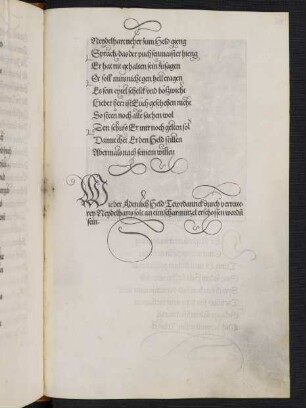 Neydelhart neher zum Held gieng
Sprach das der püchsenmaister hieng
Er hat nit gehalten sein zusagen
Er soll mirs nicht gen hell tragen
Es sein eytel schelck und bößwicht
Lieber herr ist Euch geschehen nicht
So steen noch alle sachen wol
Den schuss Er mir noch gelten sol
Damit thet Er den Held stillen
Abermals nach seinem willen
Wie der Adenlich Held Tewrdannck durch verrete-
rey Neydelharts solt an eim scharmützl erschossen worden
sein.